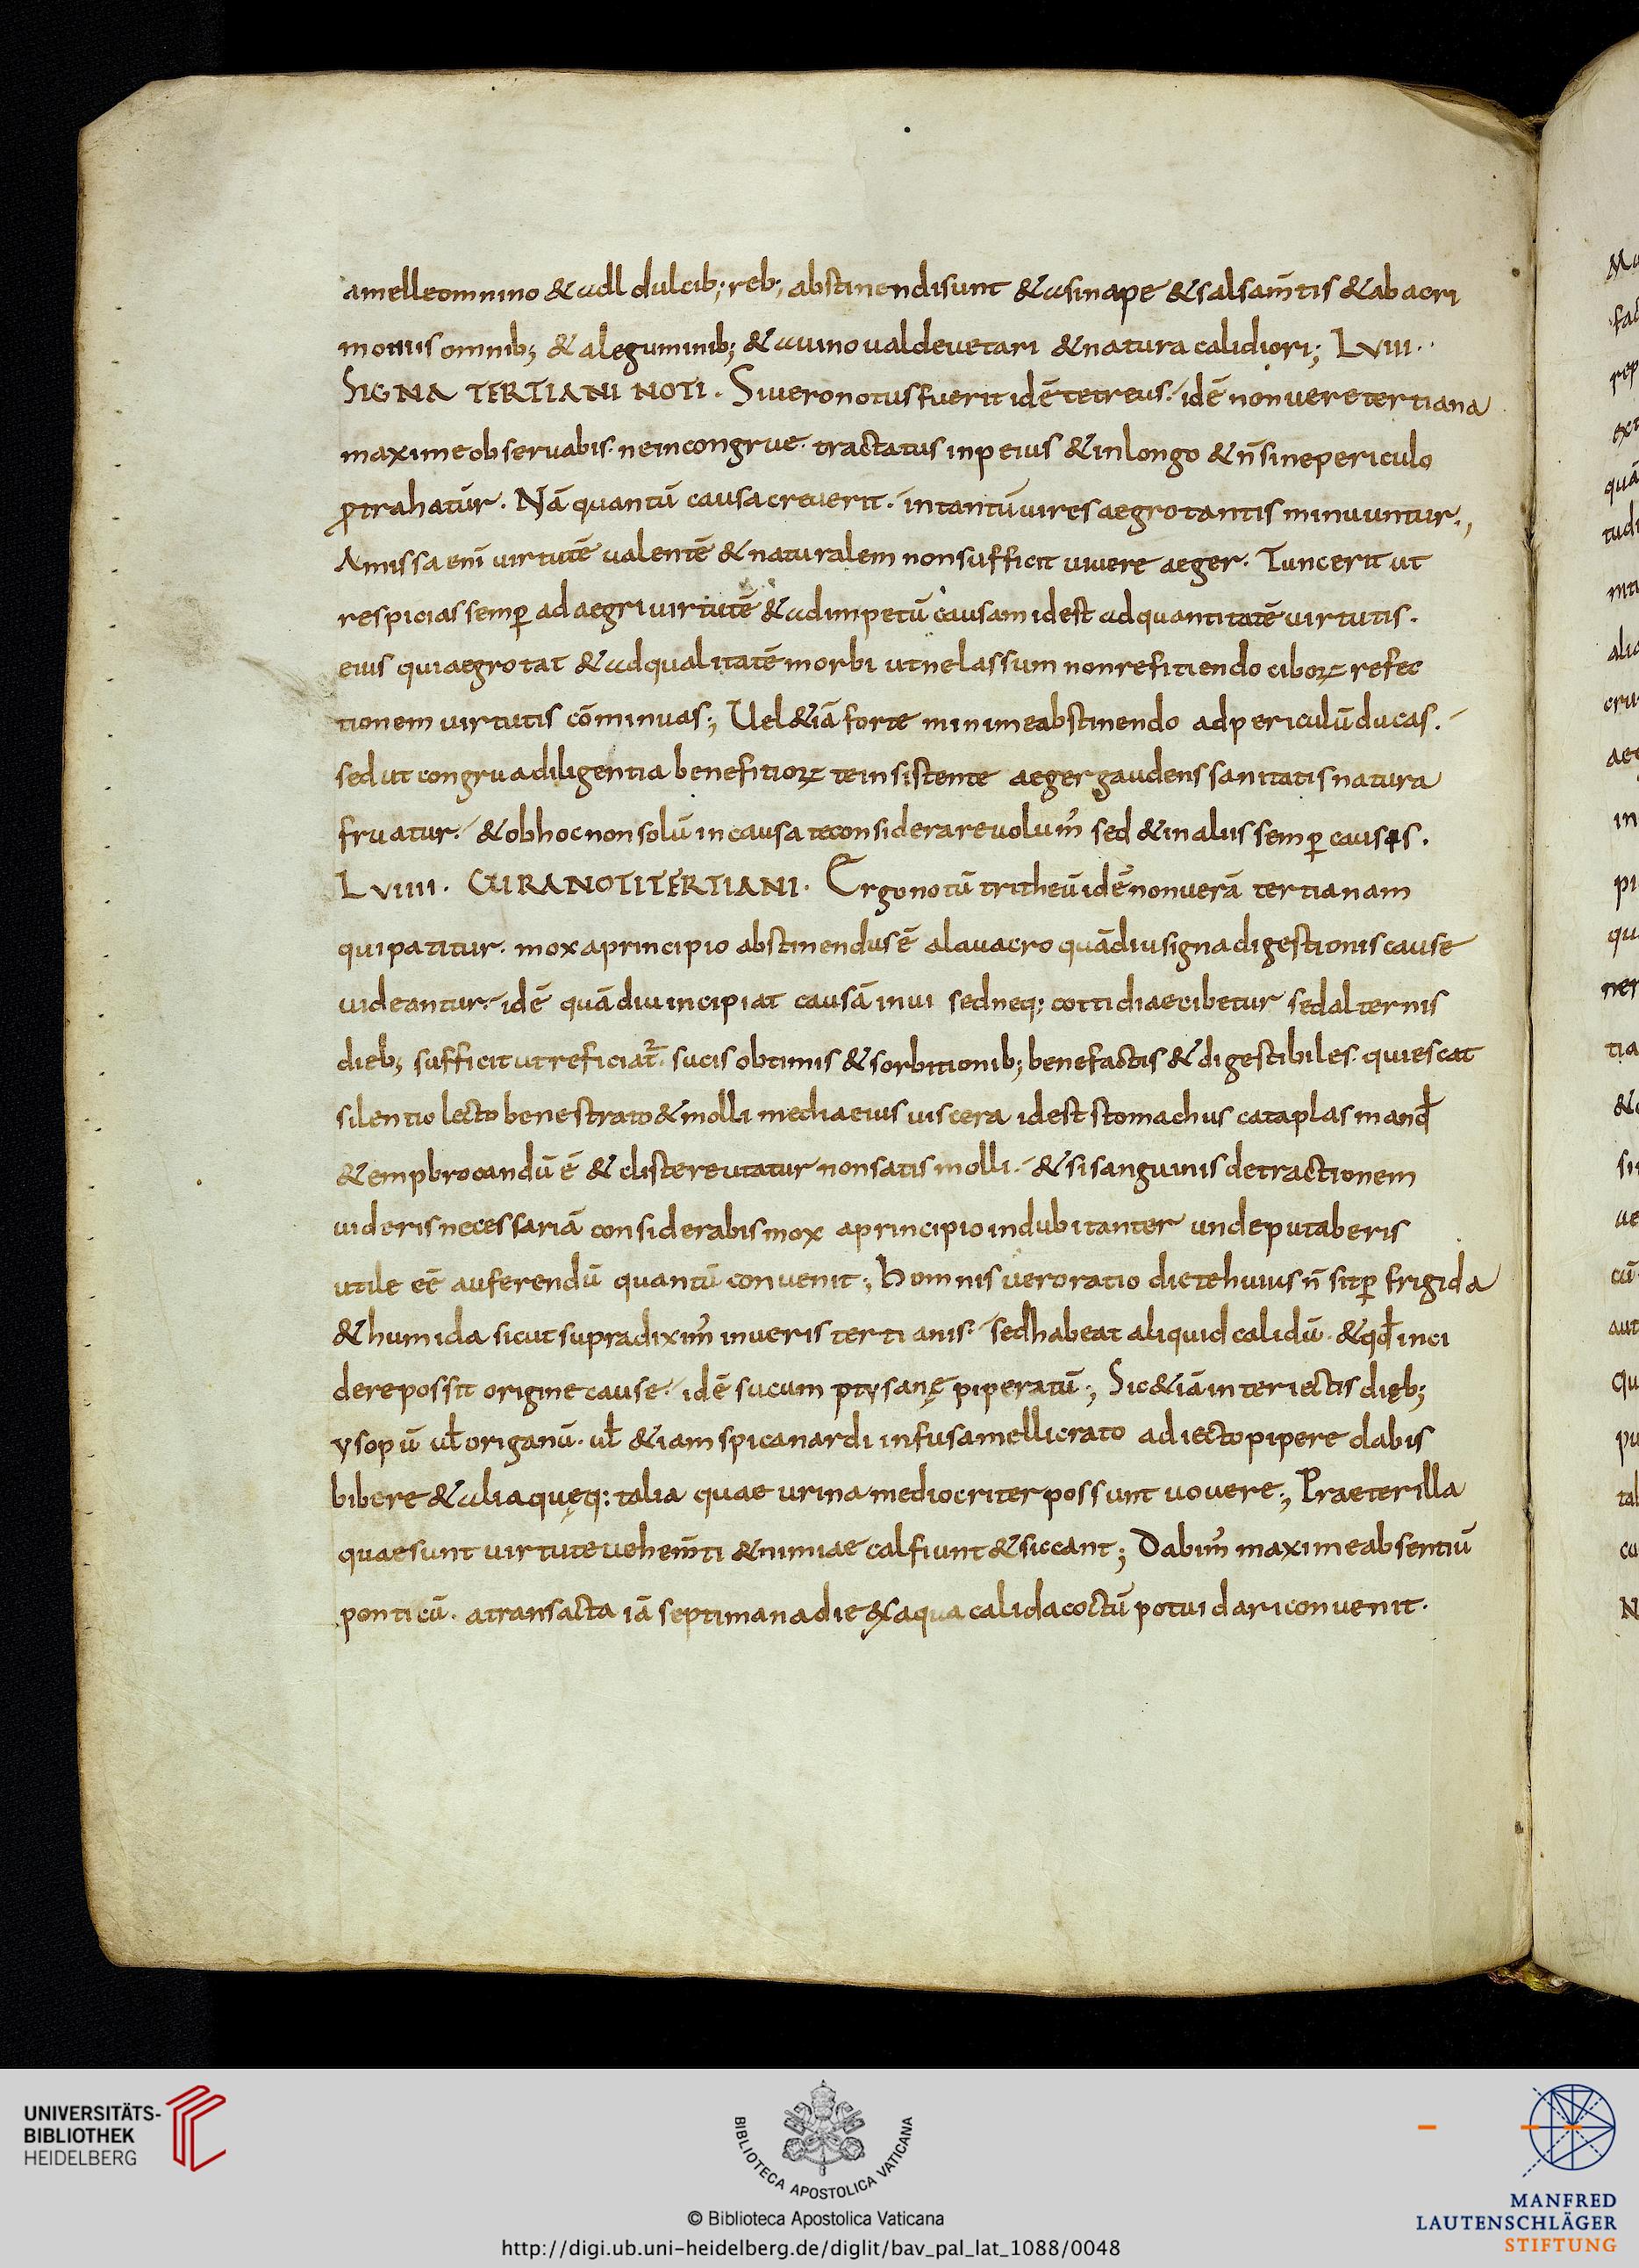 amelle omnino & adl dulcib; reb; abstinendi sunt & asinape & salsam̄tis & ab acri
moniis omnib; & aleguminib; & auino ualde uetari & natura calidiori; LVIII.
SIGNA TERTIANI NOTI. Si uero notus fuerit idē tetreus. idē non uere tertiana
maxime obseruabis. ne incongrue. tractatus inpeius & inlongo & n̄ sine periculo
ꝓtrahatur. Nā quantū causa creuerit. intantū uires aegrotantis minuuntur.,
Amissa eni̅ uirtutē ualentē & naturalem non sufficit uiuere aeger. Tunc erit ut
respicias semꝑ ad aegri uirtutē & ad impetū causam id est ad quantitatē uirtutis.
eius qui aegrotat & ad qualitatē morbi ut ne lassum non refitiendo ciboꝝ refec
tionem uirtutis cōminuas; Uel &iā forte minime abstinendo ad periculū ducas.
sed ut congrua diligentia benefitioꝝ te insistente aeger gaudens sanitatis natura
fruatur. & ob hoc non solū in causa te considerare uolum᾽ sed & in aliis semꝑ causis.
LVIIII. CURA NOTI TERTIANI. Ergo notū tritheū idē non uerā tertianam
qui patitur. mox aprincipio abstinendus ē alauacro quādiu signa digestionis cause
uideantur. idē quādiu incipiat causā inui sed neq; cottidiae cibetur sed alternis
dieb; sufficit ut reficiat᾽. sucis obtimis & sorbitionib; bene factis & digestibiles. quiescat
silentio lecto bene strato & molli media eius uiscera id est stomachus cataplasmand̄
& empbrocandū ē & clistere utatur non satis molli. & si sanguinis detractionem
uideris necessariā considerabis mox aprincipio indubitanter unde putaberis
utile eē auferendū quantū conuenit; homnis uero ratio diete huius n̄ sit ꝑ frigida
& humida sicut supra dixim᾽ in ueris tertianis. sed habeat aliquid calidū. & qd̄ inci
dere possit origine cause. idē sucum ptysanę piperatū; Sic &iā interiectis dieb;
ysopū ul̄ origanū. ul̄ &iam spicanardi infusa mellicrato adiecto pipere dabis
bibere & alia quęq; talia quae urina mediocriter possunt uouere; Praeter illa
quae sunt uirtute uehem̄ti & nimiae calfiunt & siccant; Dabim᾽ maxime absentiū
ponticū. atransacta iā septimana die & aqua calida coctū potui dari conuenit.
UNIVERSITÄTS-
BIBLIOTHEK
HEIDELBERG
BIBLIOTECA APOSTOLICA VATICANA
© Biblioteca Apostolica Vaticana
http://digi.ub.uni-heidelberg.de/diglit/bav_pal_lat_1088/0048
MANFRED
LAUTENSCHLÄGER
STIFTUNG